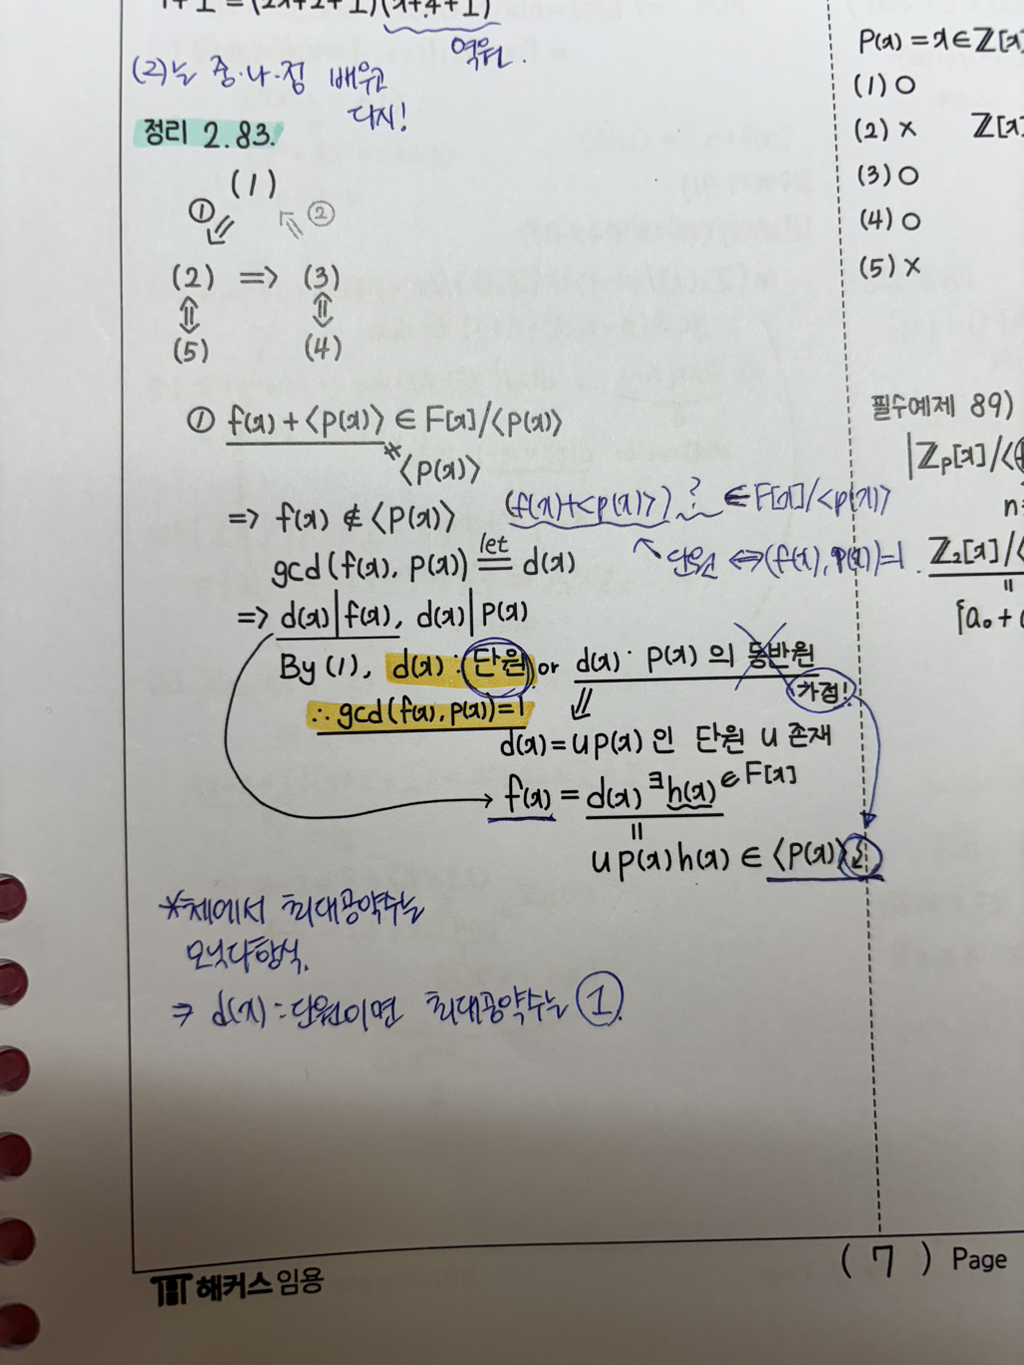 1+1 = (2x+2+1)(x+4+1)
역원.
(2)는 중·나·정 배우고
다시!
정리 2.83.
(1)
① ⇙ ⇖ ②
(2) ⇒ (3)
⇕ ⇕
(5) (4)
① f(x)+⟨p(x)⟩ ∈ F[x]/⟨p(x)⟩
* ⟨p(x)⟩
⇒ f(x) ∉ ⟨p(x)⟩
(f(x)+⟨p(x)⟩) ? ∈ F[x]/⟨p(x)⟩
↖ 단원 ⇔ (f(x), p(x))=1.
gcd(f(x), p(x)) let = d(x)
⇒ d(x)|f(x), d(x)|p(x)
By (1), d(x) : 단원 or d(x) · p(x) 의 동반원
가정!
∴ gcd(f(x), p(x))=1
⇓
d(x)=up(x) 인 단원 u 존재
f(x) = d(x) ∃h(x) ∈ F[x]
=
u p(x)h(x) ∈ ⟨p(x)⟩ ↯
*체에서 최대공약수는
모닉다항식.
⇒ d(x) : 단원이면 최대공약수는 1.
해커스 임용
P(x) = x ∈ Z[x]
(1) O
(2) × Z[x]
(3) O
(4) O
(5) ×
필수예제 89)
|Zp[x]/⟨
n
Z₂[x]/⟨
=
{a₀+
( 7 ) Page